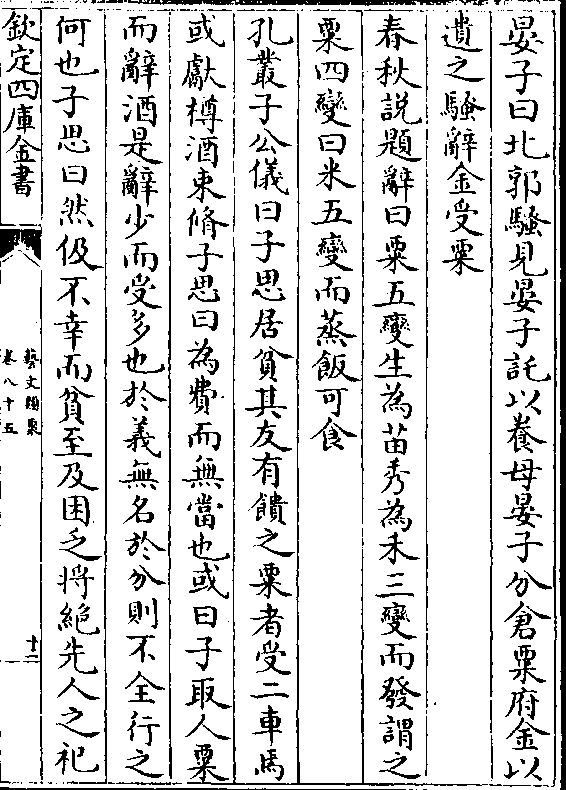 晏子曰北郭騷見晏子託以養母晏子分倉粟府金以
遺之騷辭金受粟
春秋說題辭曰粟五變生為苗秀為禾三變而發謂之
粟四變曰米五變而蒸飯可食
孔叢子公儀曰子思居貧其友有饋之粟者受二車馬
或獻樽酒束脩子思曰為費而無當也或曰子取人粟
而辭酒是辭少而受多也於義無名於分則不全行之
何也子思曰然伋不幸而貧至及困乏將絕先人之祀
欽定四庫全書
藝文類聚
卷八十五
十二